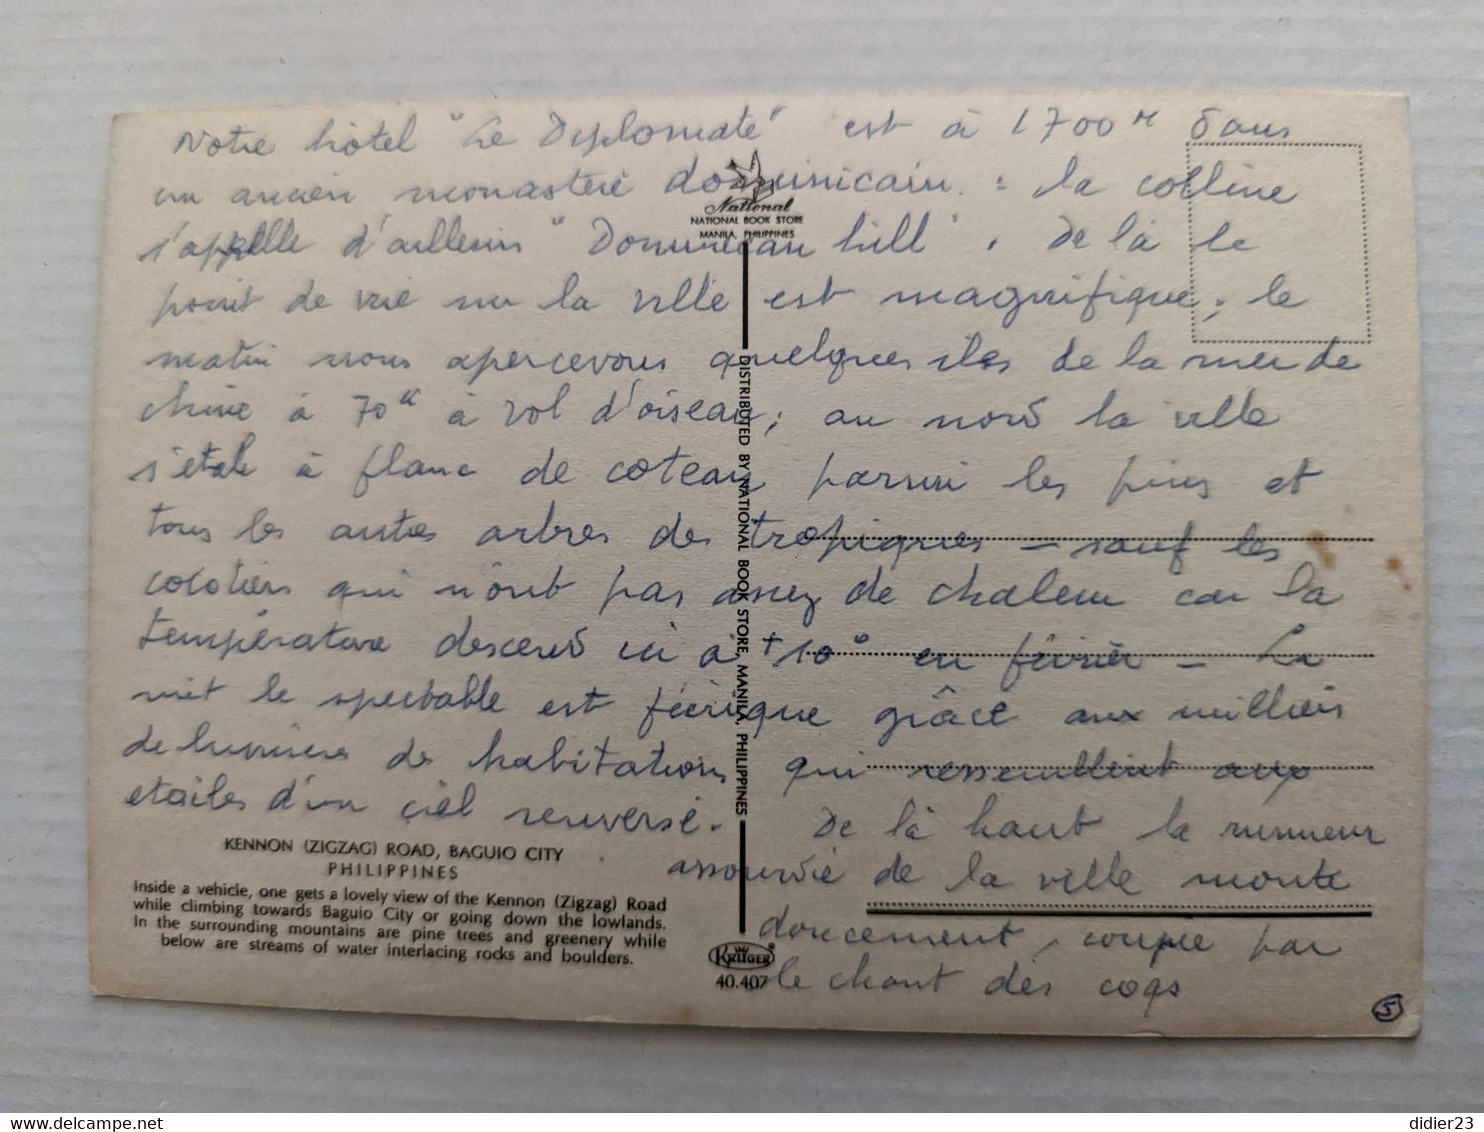 Notre hôtel "Le Diplomate" est à 1700 M dans
un ancien monastère dominicain : la colline
s'appelle d'ailleurs "Dominican hill". De là le
point de vue sur la ville est magnifique, le
matin nous apercevons quelques îles de la mer de
chine à 70 K à vol d'oiseau; au nord la ville
s'étale à flanc de coteau parmi les pins et
tous les autres arbres des tropiques - sauf les
cocotiers qui n'ont pas assez de chaleur car la
température descend ici à +10° en février - La
nuit le spectacle est féerique grâce aux milliers
de lumières des habitations qui ressemblent aux
étoiles d'un ciel renversé. De là haut la rumeur
assourdie de la ville monte
doucement, coupée par
le chant des coqs
5
National
NATIONAL BOOK STORE
MANILA, PHILIPPINES
DISTRIBUTED BY NATIONAL BOOK STORE, MANILA, PHILIPPINES
KENNON (ZIGZAG) ROAD, BAGUIO CITY
PHILIPPINES
Inside a vehicle, one gets a lovely view of the Kennon (Zigzag) Road
while climbing towards Baguio City or going down the lowlands.
In the surrounding mountains are pine trees and greenery while
below are streams of water interlacing rocks and boulders.
KRÜGER
40.407
didier23